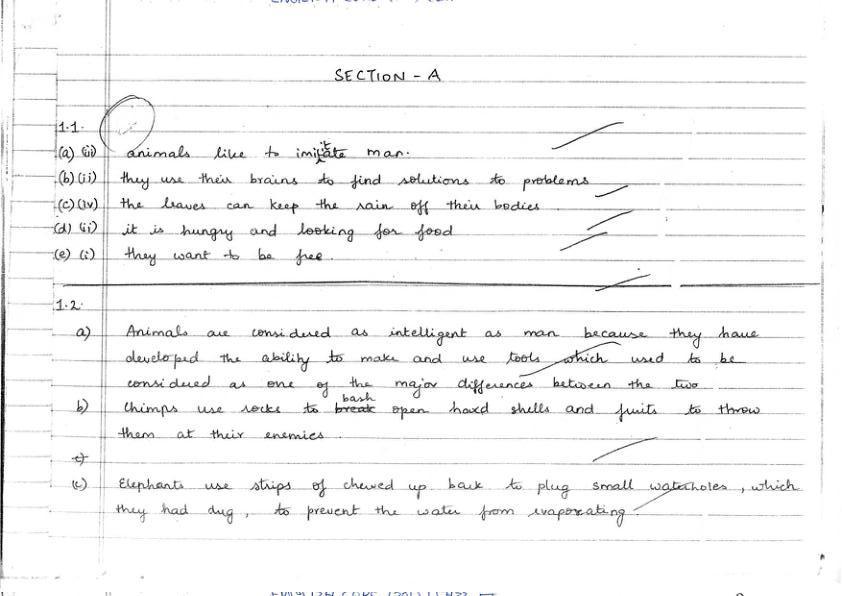 SECTION - A
1.1.
(a) (iii) animals like to imitate man.
(b) (ii) they use their brains to find solutions to problems
(c) (iv) the leaves can keep the rain off their bodies
(d) (ii) it is hungry and looking for food
(e) (i) they want to be free.
1.2.
a) Animals are considered as intelligent as man because they have
developed the ability to make and use tools which used to be
considered as one of the major differences between the two
bash
b) Chimps use rocks to break open hard shells and fruits to throw
them at their enemies.
c)
(c) Elephants use strips of chewed up bark to plug small waterholes, which
they had dug, to prevent the water from evaporating.